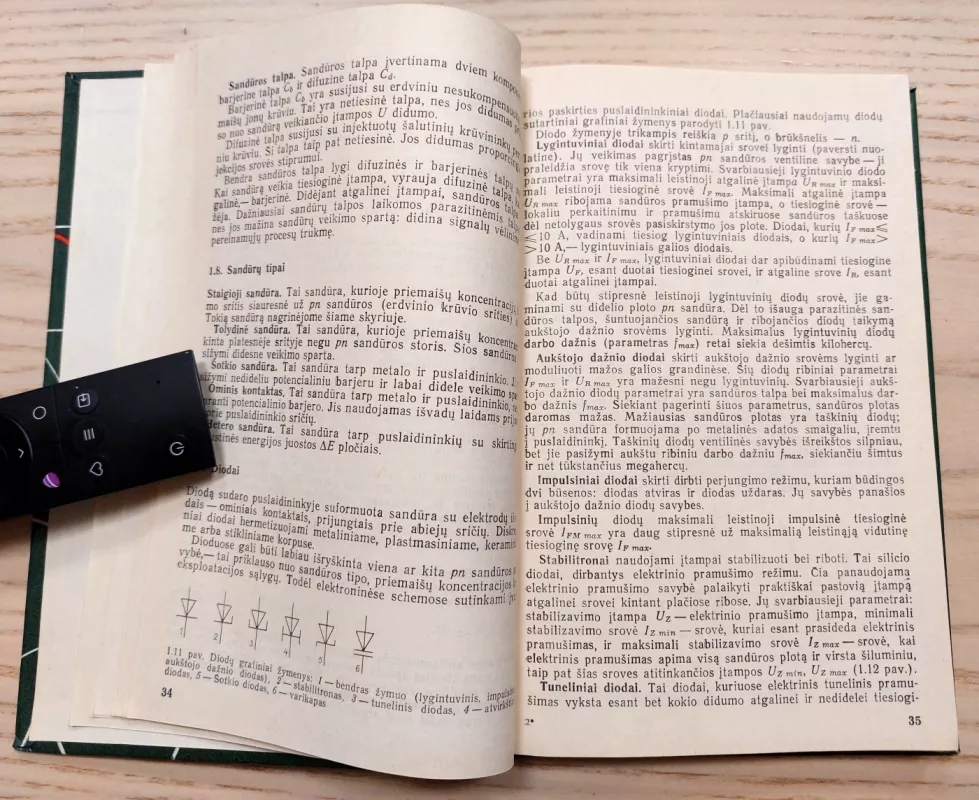 Sandūros talpa. Sandūros talpa įvertinama dviem
barjerine talpa Cb ir difuzine talpa Cd.
Barjerinė talpa Cb yra susijusi su erdviniu nesukompensuotų
maišų jonų krūviu. Tai yra netiesinė talpa, nes jos didumas
so nuo sandūrą veikiančio įtampos U didumo.
Difuzinė talpa susijusi su injektuotų šalutinių krūvininkų
niu krūviu. Ši talpa taip pat netiesinė. Jos didumas
jekcijos srovės stiprumui.
Bendra sandūros talpa lygi difuzinės ir barjerinės talpų
Kai sandūrą veikia tiesioginė įtampa, vyrauja difuzinė talpa,
galinė,— barjerinė. Didėjant atgalinei įtampai, sandūros talpa
žėja. Dažniausiai sandūrų talpos laikomos parazitinėmis
nes jos mažina sandūrų veikimo spartą: didina signalų
pereinamųjų procesų trukmę.
1.8. Sandūrų tipai
Staigioji sandūra. Tai sandūra, kurioje priemaišų
mo sritis siauresnė už pn sandūros (erdvinio krūvio srities)
Tokią sandūrą nagrinėjome šiame skyriuje.
Tolydinė sandūra. Tai sandūra, kurioje priemaišų
kinta platesnėje srityje negu pn sandūros storis. Šios
sižymi didesne veikimo sparta.
Šotkio sandūra. Tai sandūra tarp metalo ir puslaidininkio.
sižymi nedideliu potencialiniu barjeru ir labai didele veikimo
Ominis kontaktas. Tai sandūra tarp metalo ir puslaidininkio,
potencialinio barjero. Jis naudojamas išvadų laidams
prie puslaidininkio sričių.
sandūra. Tai sandūra tarp puslaidininkių su
energijos juostos ΔE pločiais.
Diodai
Diodą sudaro puslaidininkyje suformuota sandūra su elektrodų
dais — ominiais kontaktais, prijungtais prie abiejų sričių.
niai diodai hermetizuojami metaliniame, plastmasiniame,
me arba stikliniame korpuse.
Dioduose gali būti labiau išryškinta viena ar kita pn sandūros
vybė,— tai priklauso nuo sandūros tipo, priemaišų koncentracijos
eksploatacijos sąlygų. Todėl elektroninėse schemose sutinkami
1 2 3 4 5 6
1.11 pav. Diodų grafiniai žymenys: 1 — bendras žymuo (lygintuvinis,
aukštojo dažnio diodas), 2 — stabilitronas, 3 — tunelinis diodas, 4 —
diodas, 5 — Šotkio diodas, 6 — varikapas
34
rios paskirties puslaidininkiniai diodai. Plačiausiai naudojamų diodų
sutartiniai grafiniai žymenys parodyti 1.11 pav.
Diodo žymenyje trikampis reiškia p sritį, o brūkšnelis — n.
Lygintuviniai diodai skirti kintamajai srovei lyginti (paversti nuo-
latine). Jų veikimas pagrįstas pn sandūros ventiline savybe — ji
praleidžia srovę tik viena kryptimi. Svarbiausieji lygintuvinio diodo
parametrai yra maksimali leistinoji atgalinė įtampa UR max ir maksi-
mali leistinoji tiesioginė srovė IF max. Maksimali atgalinė įtampa
UR max ribojama sandūros pramušimo įtampa, o tiesioginė srovė —
lokaliu perkaitinimu ir pramušimu atskiruose sandūros taškuose
dėl netolygaus srovės pasiskirstymo jos plote. Diodai, kurių IF max ≤
≤10 A, vadinami tiesiog lygintuviniais diodais, o kurių IF max >
>10 A,— lygintuviniais galios diodais.
Be UR max ir IF max, lygintuviniai diodai dar apibūdinami tiesiogine
įtampa UF, esant duotai tiesioginei srovei, ir atgaline srove IR, esant
duotai atgalinei įtampai.
Kad būtų stipresnė leistinoji lygintuvinių diodų srovė, jie ga-
minami su didelio ploto pn sandūra. Dėl to išauga parazitinės san-
dūros talpos, šuntuojančios sandūrą ir ribojančios diodų taikymą
aukštojo dažnio srovėms lyginti. Maksimalus lygintuvinių diodų
darbo dažnis (parametras fmax) retai siekia dešimtis kilohercų.
Aukštojo dažnio diodai skirti aukštojo dažnio srovėms lyginti ar
moduliuoti mažos galios grandinėse. Šių diodų ribiniai parametrai
IF max ir UR max yra mažesni negu lygintuvinių. Svarbiausieji aukš-
tojo dažnio diodų parametrai yra sandūros talpa bei maksimalus dar-
bo dažnis fmax. Siekiant pagerinti šiuos parametrus, sandūros plotas
daromas mažas. Mažiausias sandūros plotas yra taškinių diodų;
jų pn sandūra formuojama po metalinės adatos smaigaliu, įremtu
į puslaidininkį. Taškinių diodų ventilinės savybės išreikštos silpniau,
bet jie pasižymi aukštu ribiniu darbo dažniu fmax, siekiančiu šimtus
ir net tūkstančius megahercų.
Impulsiniai diodai skirti dirbti perjungimo režimu, kuriam būdingos
dvi būsenos: diodas atviras ir diodas uždaras. Jų savybės panašios
į aukštojo dažnio diodų savybes.
Impulsinių diodų maksimali leistinoji impulsinė tiesioginė
srovė IFM max yra daug stipresnė už maksimalią leistinąją vidutinę
tiesioginę srovę IF max.
Stabilitronai naudojami įtampai stabilizuoti bei riboti. Tai silicio
diodai, dirbantys elektrinio pramušimo režimu. Čia panaudojama
elektrinio pramušimo savybė palaikyti praktiškai pastovią įtampą
atgalinei srovei kintant plačiose ribose. Jų svarbiausieji parametrai:
stabilizavimo įtampa UZ — elektrinio pramušimo įtampa, minimali
stabilizavimo srovė IZ min — srovė, kuriai esant prasideda elektrinis
pramušimas, ir maksimali stabilizavimo srovė IZ max — srovė, kai
elektrinis pramušimas apima visą sandūros plotą ir virsta šiluminiu,
taip pat šias sroves atitinkančios įtampos UZ min, UZ max (1.12 pav.).
Tuneliniai diodai. Tai diodai, kuriuose elektrinis tunelinis pramu-
šimas vyksta esant bet kokio didumo atgalinei ir nedidelei tiesiogi-
2*
35